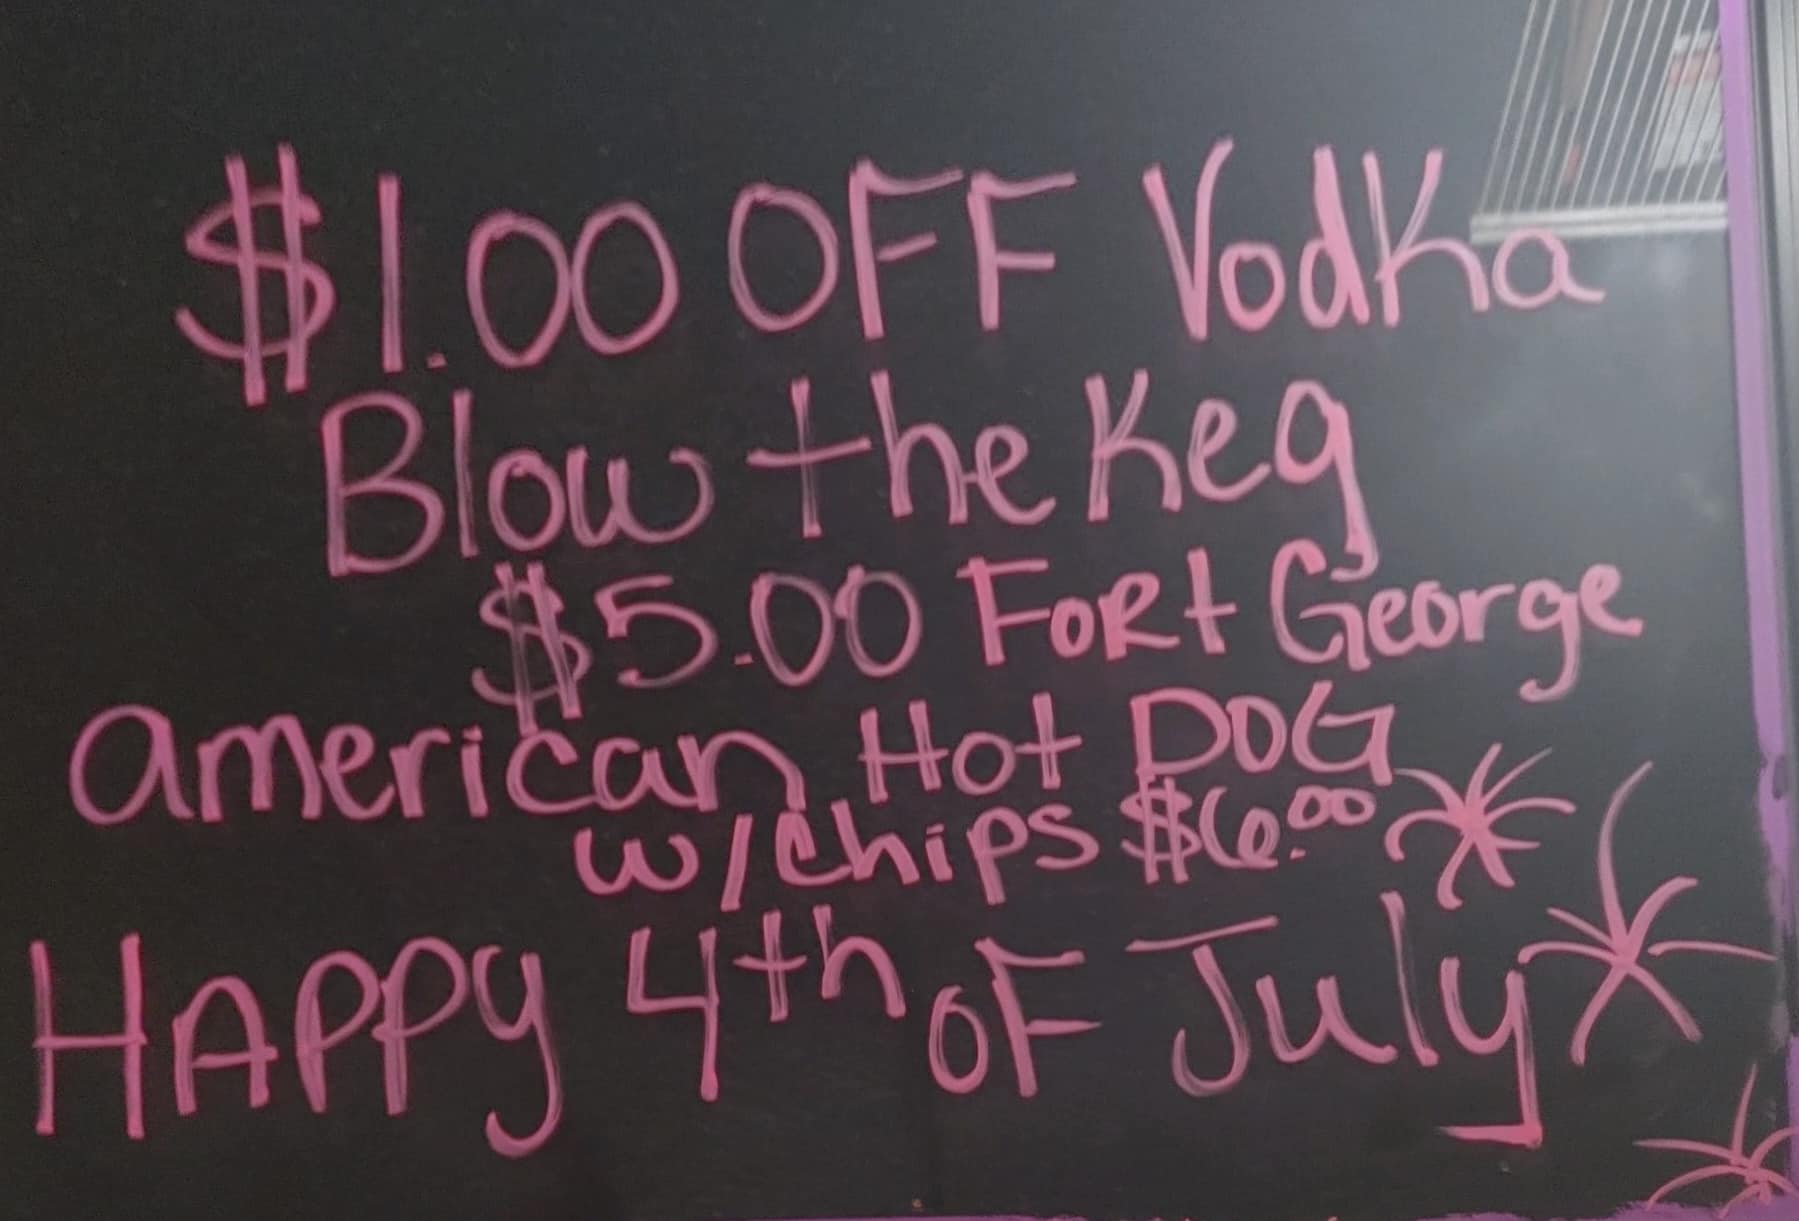 $1.00 OFF Vodka
Blow the Keg
$5.00 Fort George
American Hot DOG
w/chips $6.00
HAPPy 4th oF July